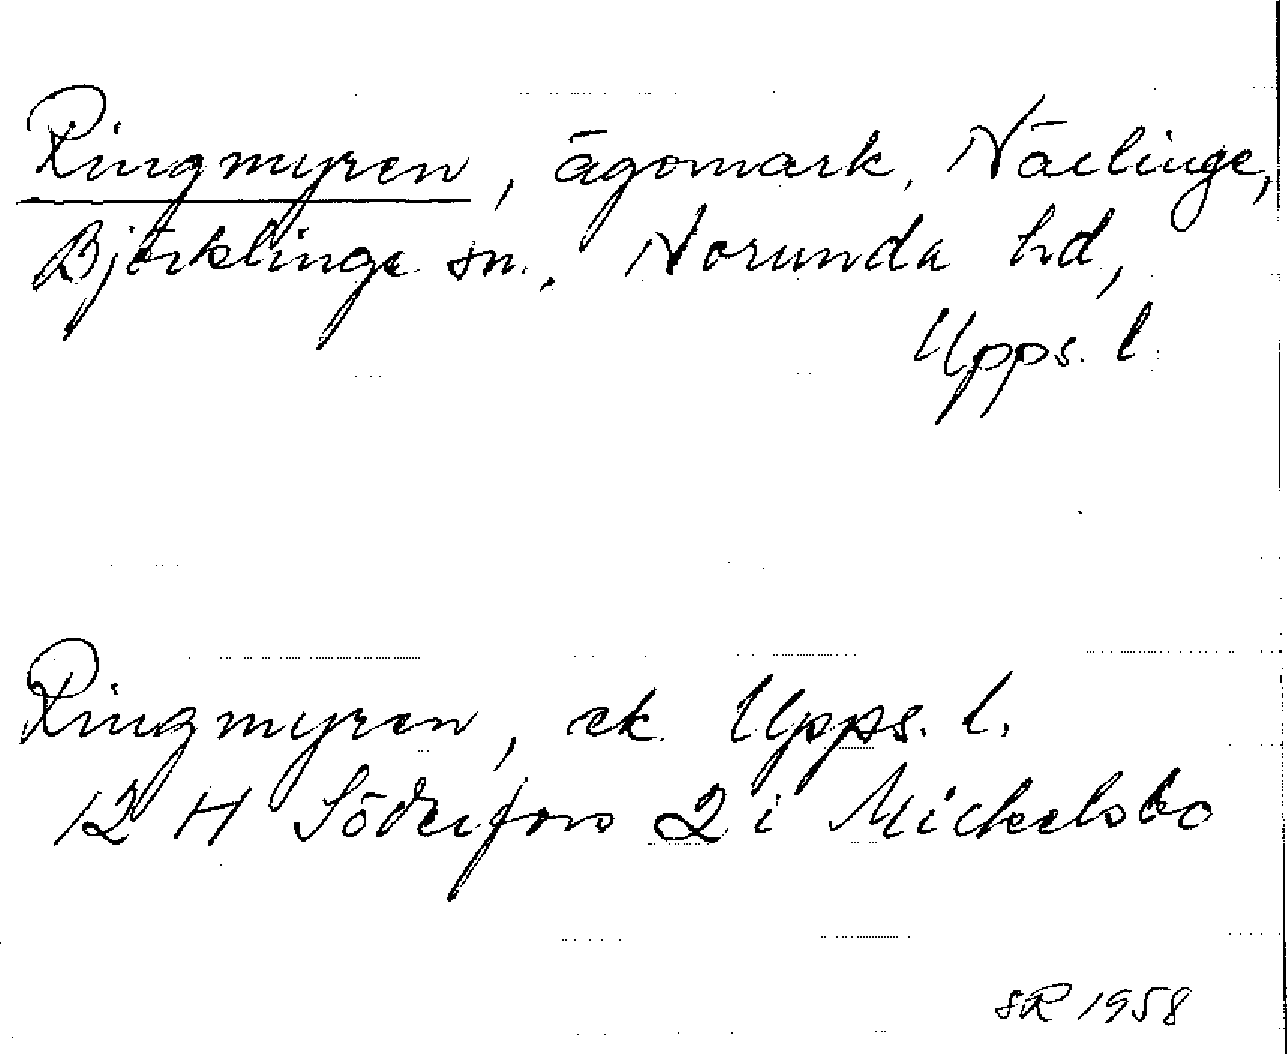 Ringmyren, ägomark, Närlinge,
Björklinge sn., Norunda hd,
Upps. l.
Ringmyren, ek. Upps. l.
12 H Söderfors 2 i Michelsbo
SR 1958